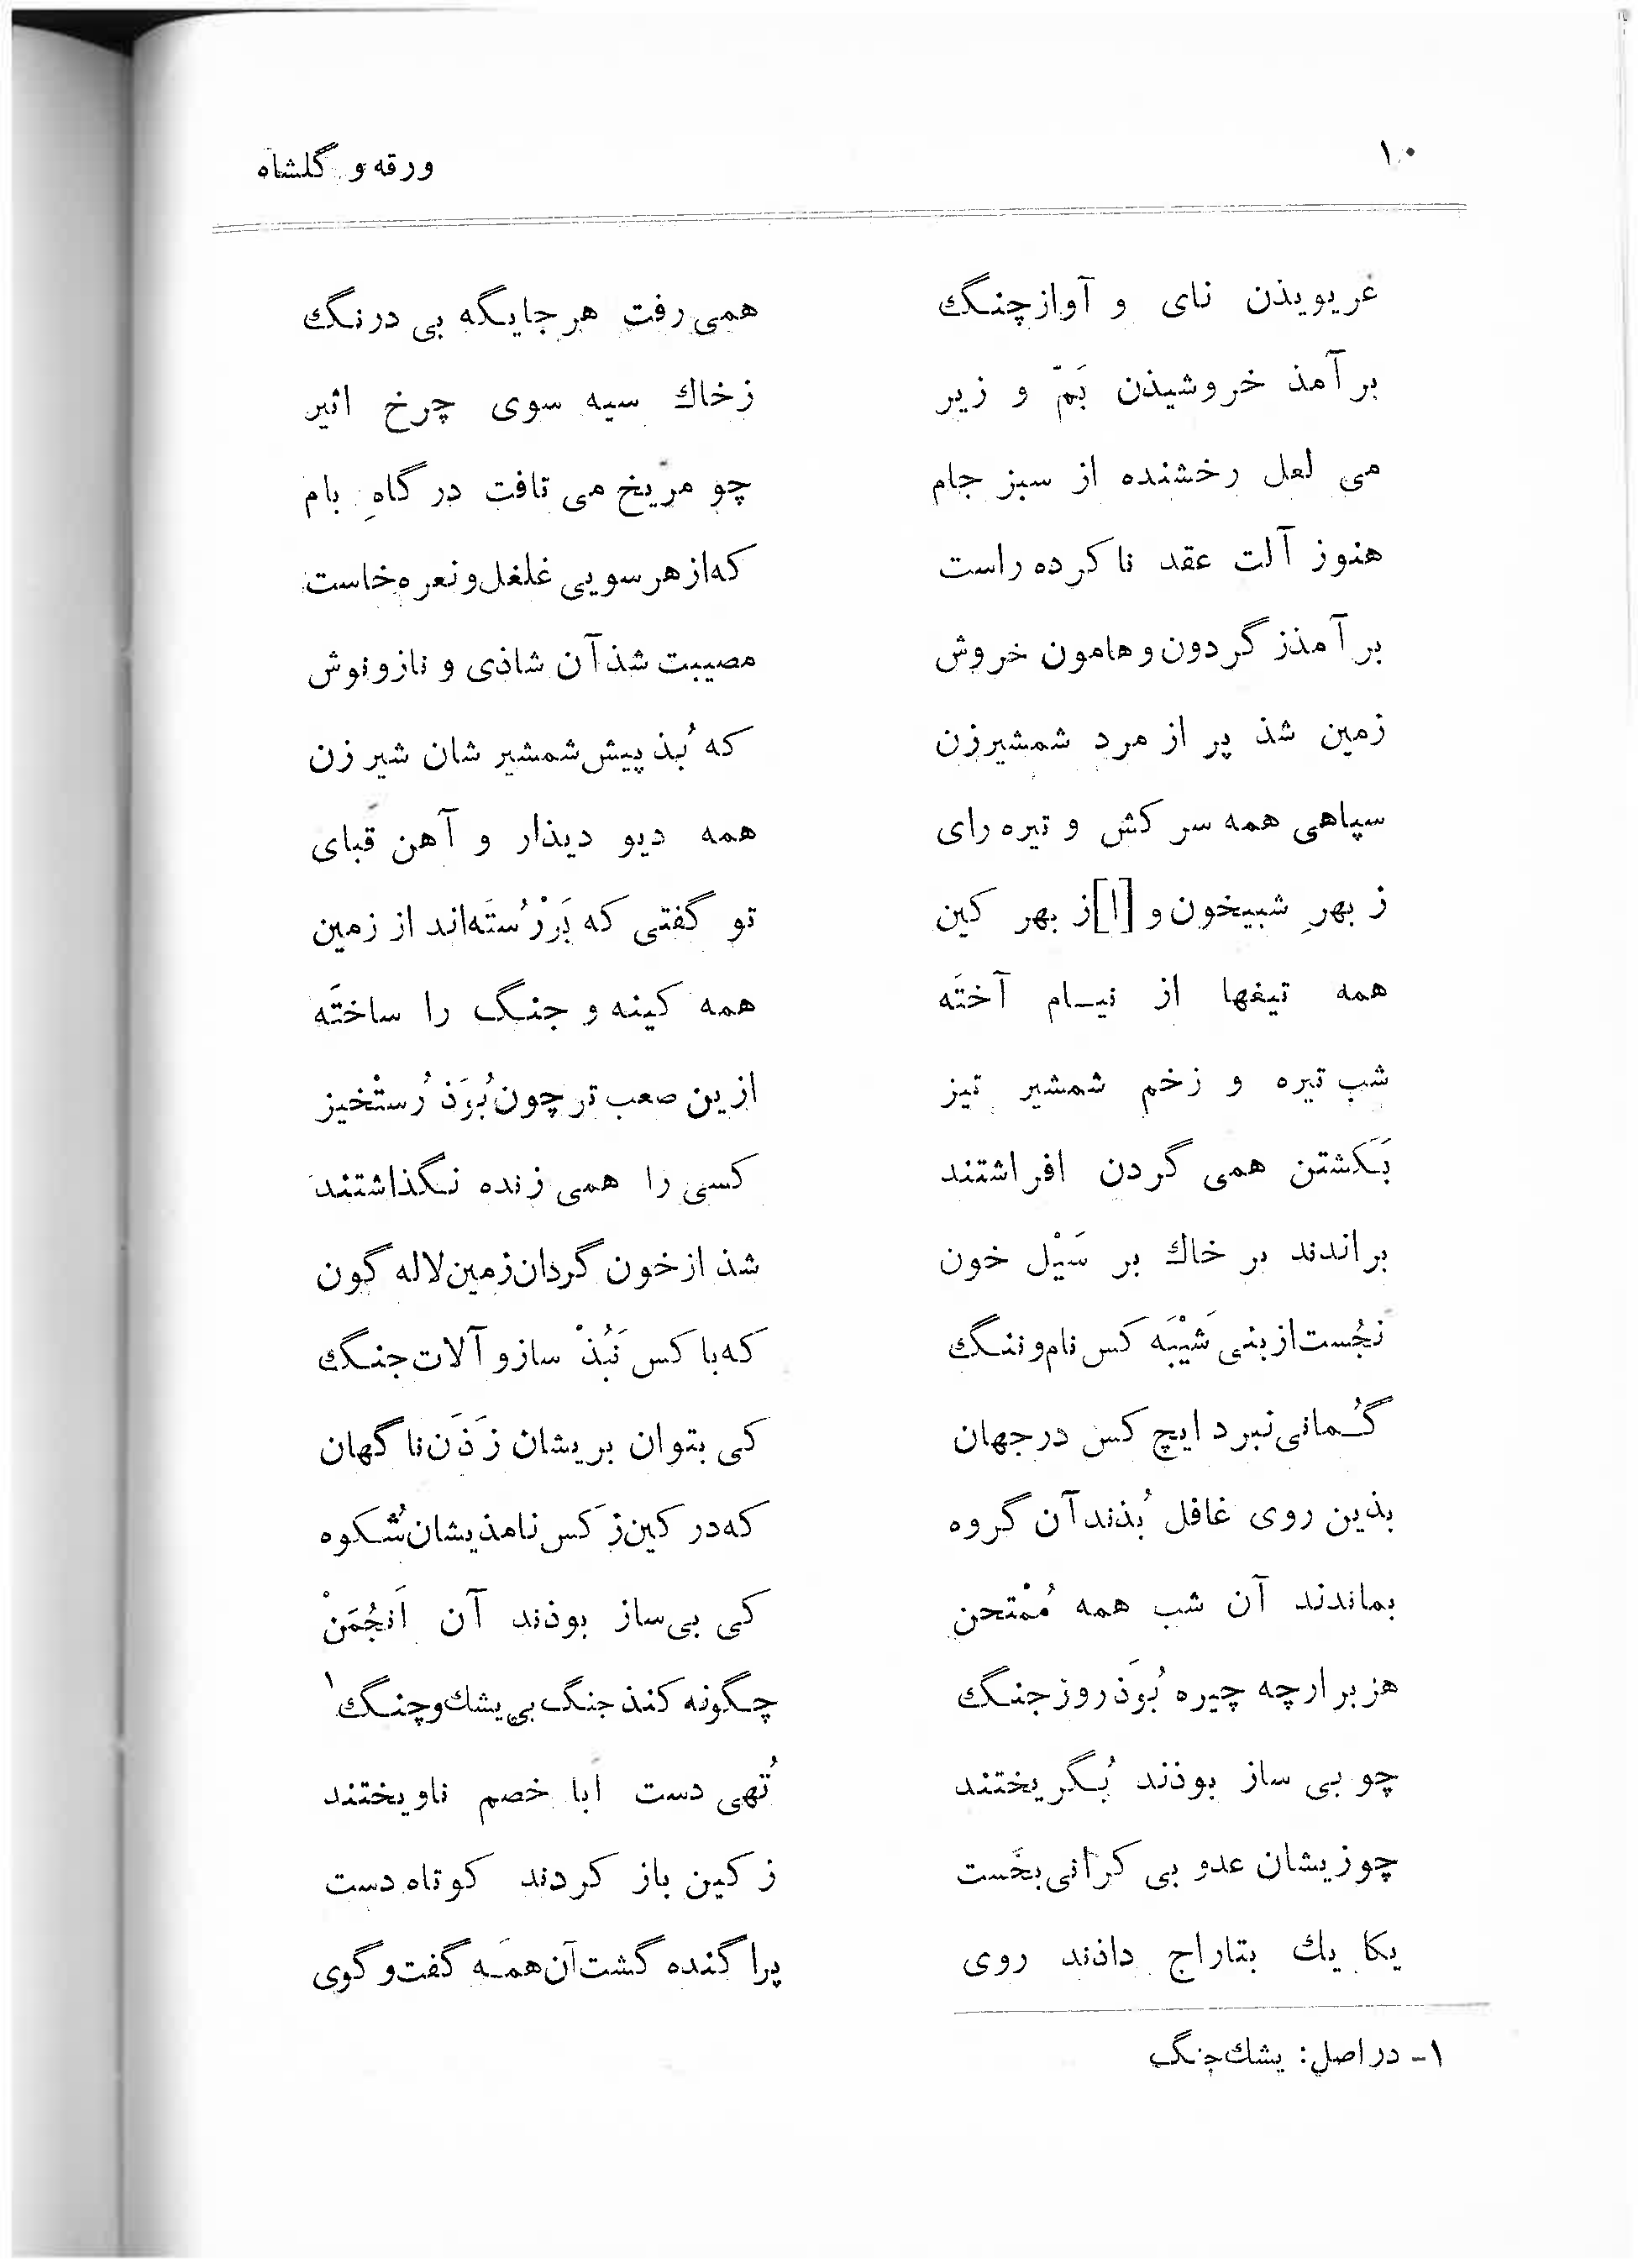 ۱۰ ورقه و گلشاه
غریویذن نای و آواز چنگ همی رفت هر جایگه بی درنگ
بر آمذ خروشیذن بَمّ و زیر ز خاك سیه سوی چرخ اثیر
می لعل رخشنده از سبز جام چو مرّیخ می تافت در گاهِ بام
هنوز آلت عقد ناکرده راست که از هر سویی غلغل و نعره خاست
بر آمذ ز گردون و هامون خروش مصیبت شذ آن شاذی و ناز و نوش
زمین شذ پر از مرد شمشیرزن که بُذ پیش شمشیر شان شیر زن
سپاهی همه سر کش و تیره رای همه دیو دیذار و آهن قَبای
ز بهرِ شبیخون و [ا]ز بهر کین تو گفتی که بَرْرُستَه‌اند از زمین
همه تیغها از نیـام آختَه همه کینه و جنگ را ساختَه
شب تیره و زخم شمشیر تیز ازین صعب تر چون بُوَذ رُستْخیز
بَکشتن همی گردن افراشتند کسی را همی زنده نگذاشتند
براندند بر خاك بر سَیْل خون شذ از خون گردان زمین لاله گون
نَجُست از بنی شَیْبَه کس نام و ننگ که با کس نَبُذْ ساز و آلات جنگ
گُـمانی نبرد ایچ کس در جهان کی بتوان بریشان زَذَن ناگهان
بذین روی غافل بُذند آن گروه که در کین ز کَس نامذیشان شُکوه
بماندند آن شب همه مُمْتحن کی بی‌ساز بوذند آن اَنجُمَنْ
هزبر ارچه چیره بُوَذ روز جنگ چگونه کنذ جنگ بی یشك و چنگ۱
چو بی ساز بوذند بُگریختند تُهی دست اَبا خصم ناویختند
چو زیشان عدو بی کَرانی بخَست ز کین باز کردند کوتاه دست
یکا یك بتاراج داذند روی پراگنده گشت آن همَـه گفت و گوی
۱- در اصل: یشك جنگ